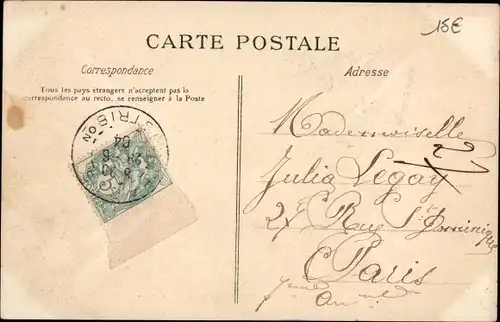 15€
CARTE POSTALE
Correspondance
Adresse
Tous les pays étrangers n'acceptent pas la
correspondance au recto, se renseigner à la Poste
DISTRIBON
04
Mademoiselle
Julia Legay
27 Rue St Dominique
Paris
7eme Arr